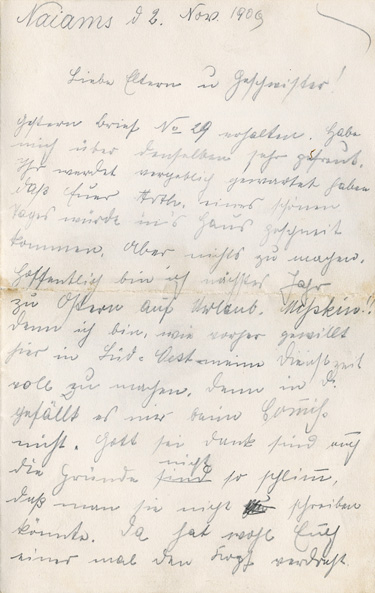 Naiams d 2. Nov. 1909
Liebe Eltern u Geschwister!
gestern Brief No 29 erhalten. Habe
mich über denselben sehr gefreut.
Ihr werdet vergeblich gewartet haben
daß Euer Arth. eines schönen
Tages würde in's Haus geschneit
kommen. Aber nichts zu machen.
Hoffentlich bin ich nächstes Jahr
zu Ostern auf Urlaub.
denn ich bin, wie vorher gewillt
hier in Süd-West meine Dienstzeit
voll zu machen, denn in D.
gefällt es mir beim
nicht. Gott sei dank sind auch
die Gründe nicht so schlimm,
daß man sie nicht schreiben
könnte. Da hat wohl Euch
einer mal den Kopf verdreht.